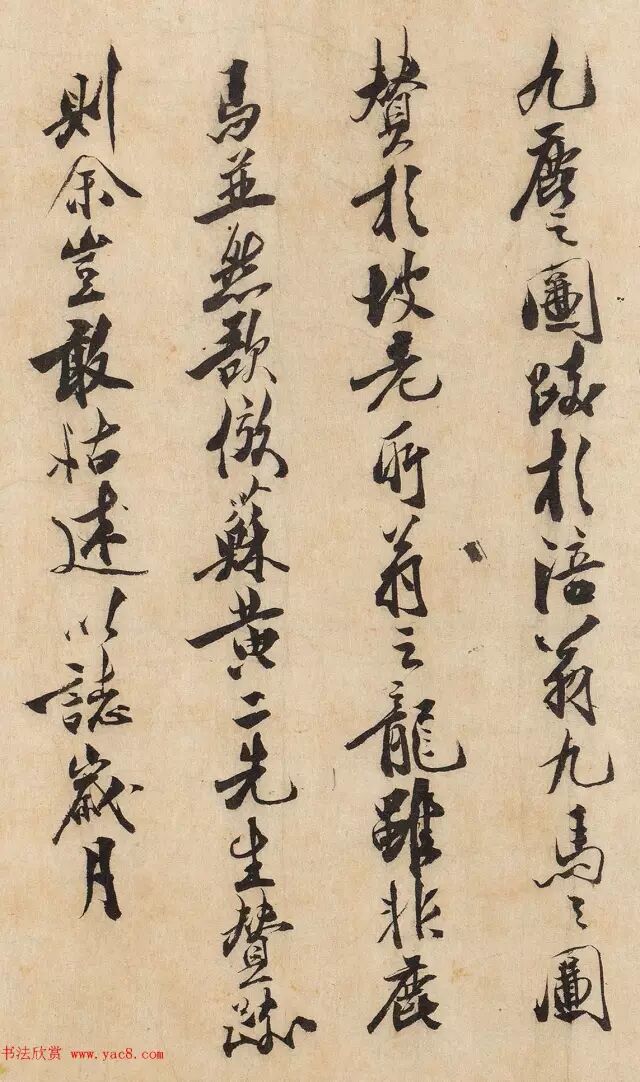 九鹿之圖跋於涪翁九馬之圖
贊於坡老所翁之龍雖非鹿
馬並然欲倣蘇黃二先生贊跋
則余豈敢姑述以誌歲月
书法欣赏 www.yac8.com